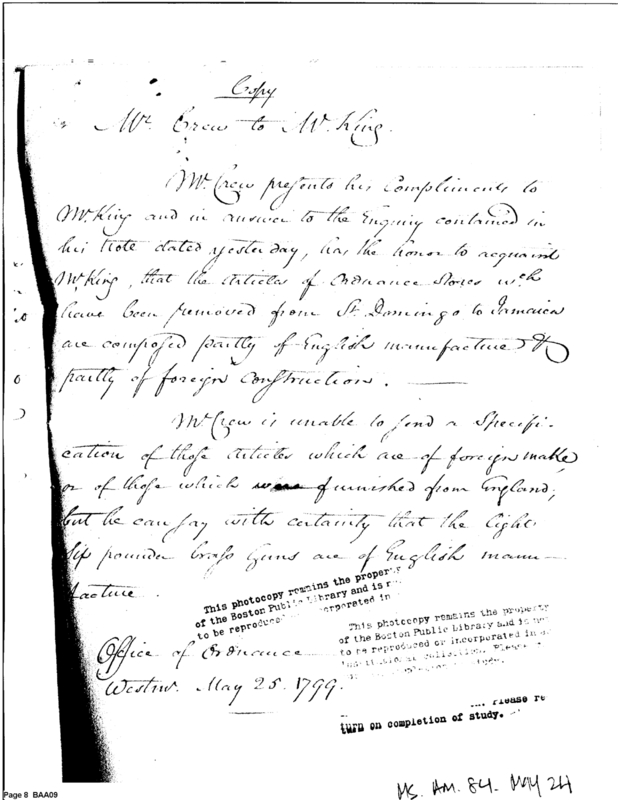 Copy
Mr. Crew to Mr. King.
Mr. Crew presents his Compliments to
Mr. King and in answer to the Enquiry contained in
his Note dated yesterday, has the honor to acquaint
Mr. King, that the Articles of Ordnance Stores wch
have been removed from St. Domingo to Jamaica
are composed partly of English manufacture &
partly of foreign Construction.
Mr. Crew is unable to send a Specifi-
cation of those Articles which are of foreign make,
or of those which furnished from England;
but he can say with certainty that the light
Six pounder brass Guns are of English manu-
facture.
This photocopy remains the property
of the Boston Public Library and is n
to be reproduced incorporated in
This photocopy remains the property
of the Boston Public Library and is no
to be reproduced or incorporated in a
institutional collection. Please
Office of Ordnance
Westmr. May 25. 1799.
Please re
turn on completion of study.
MS. AM. 84. MAY 24
Page 8 BAA09